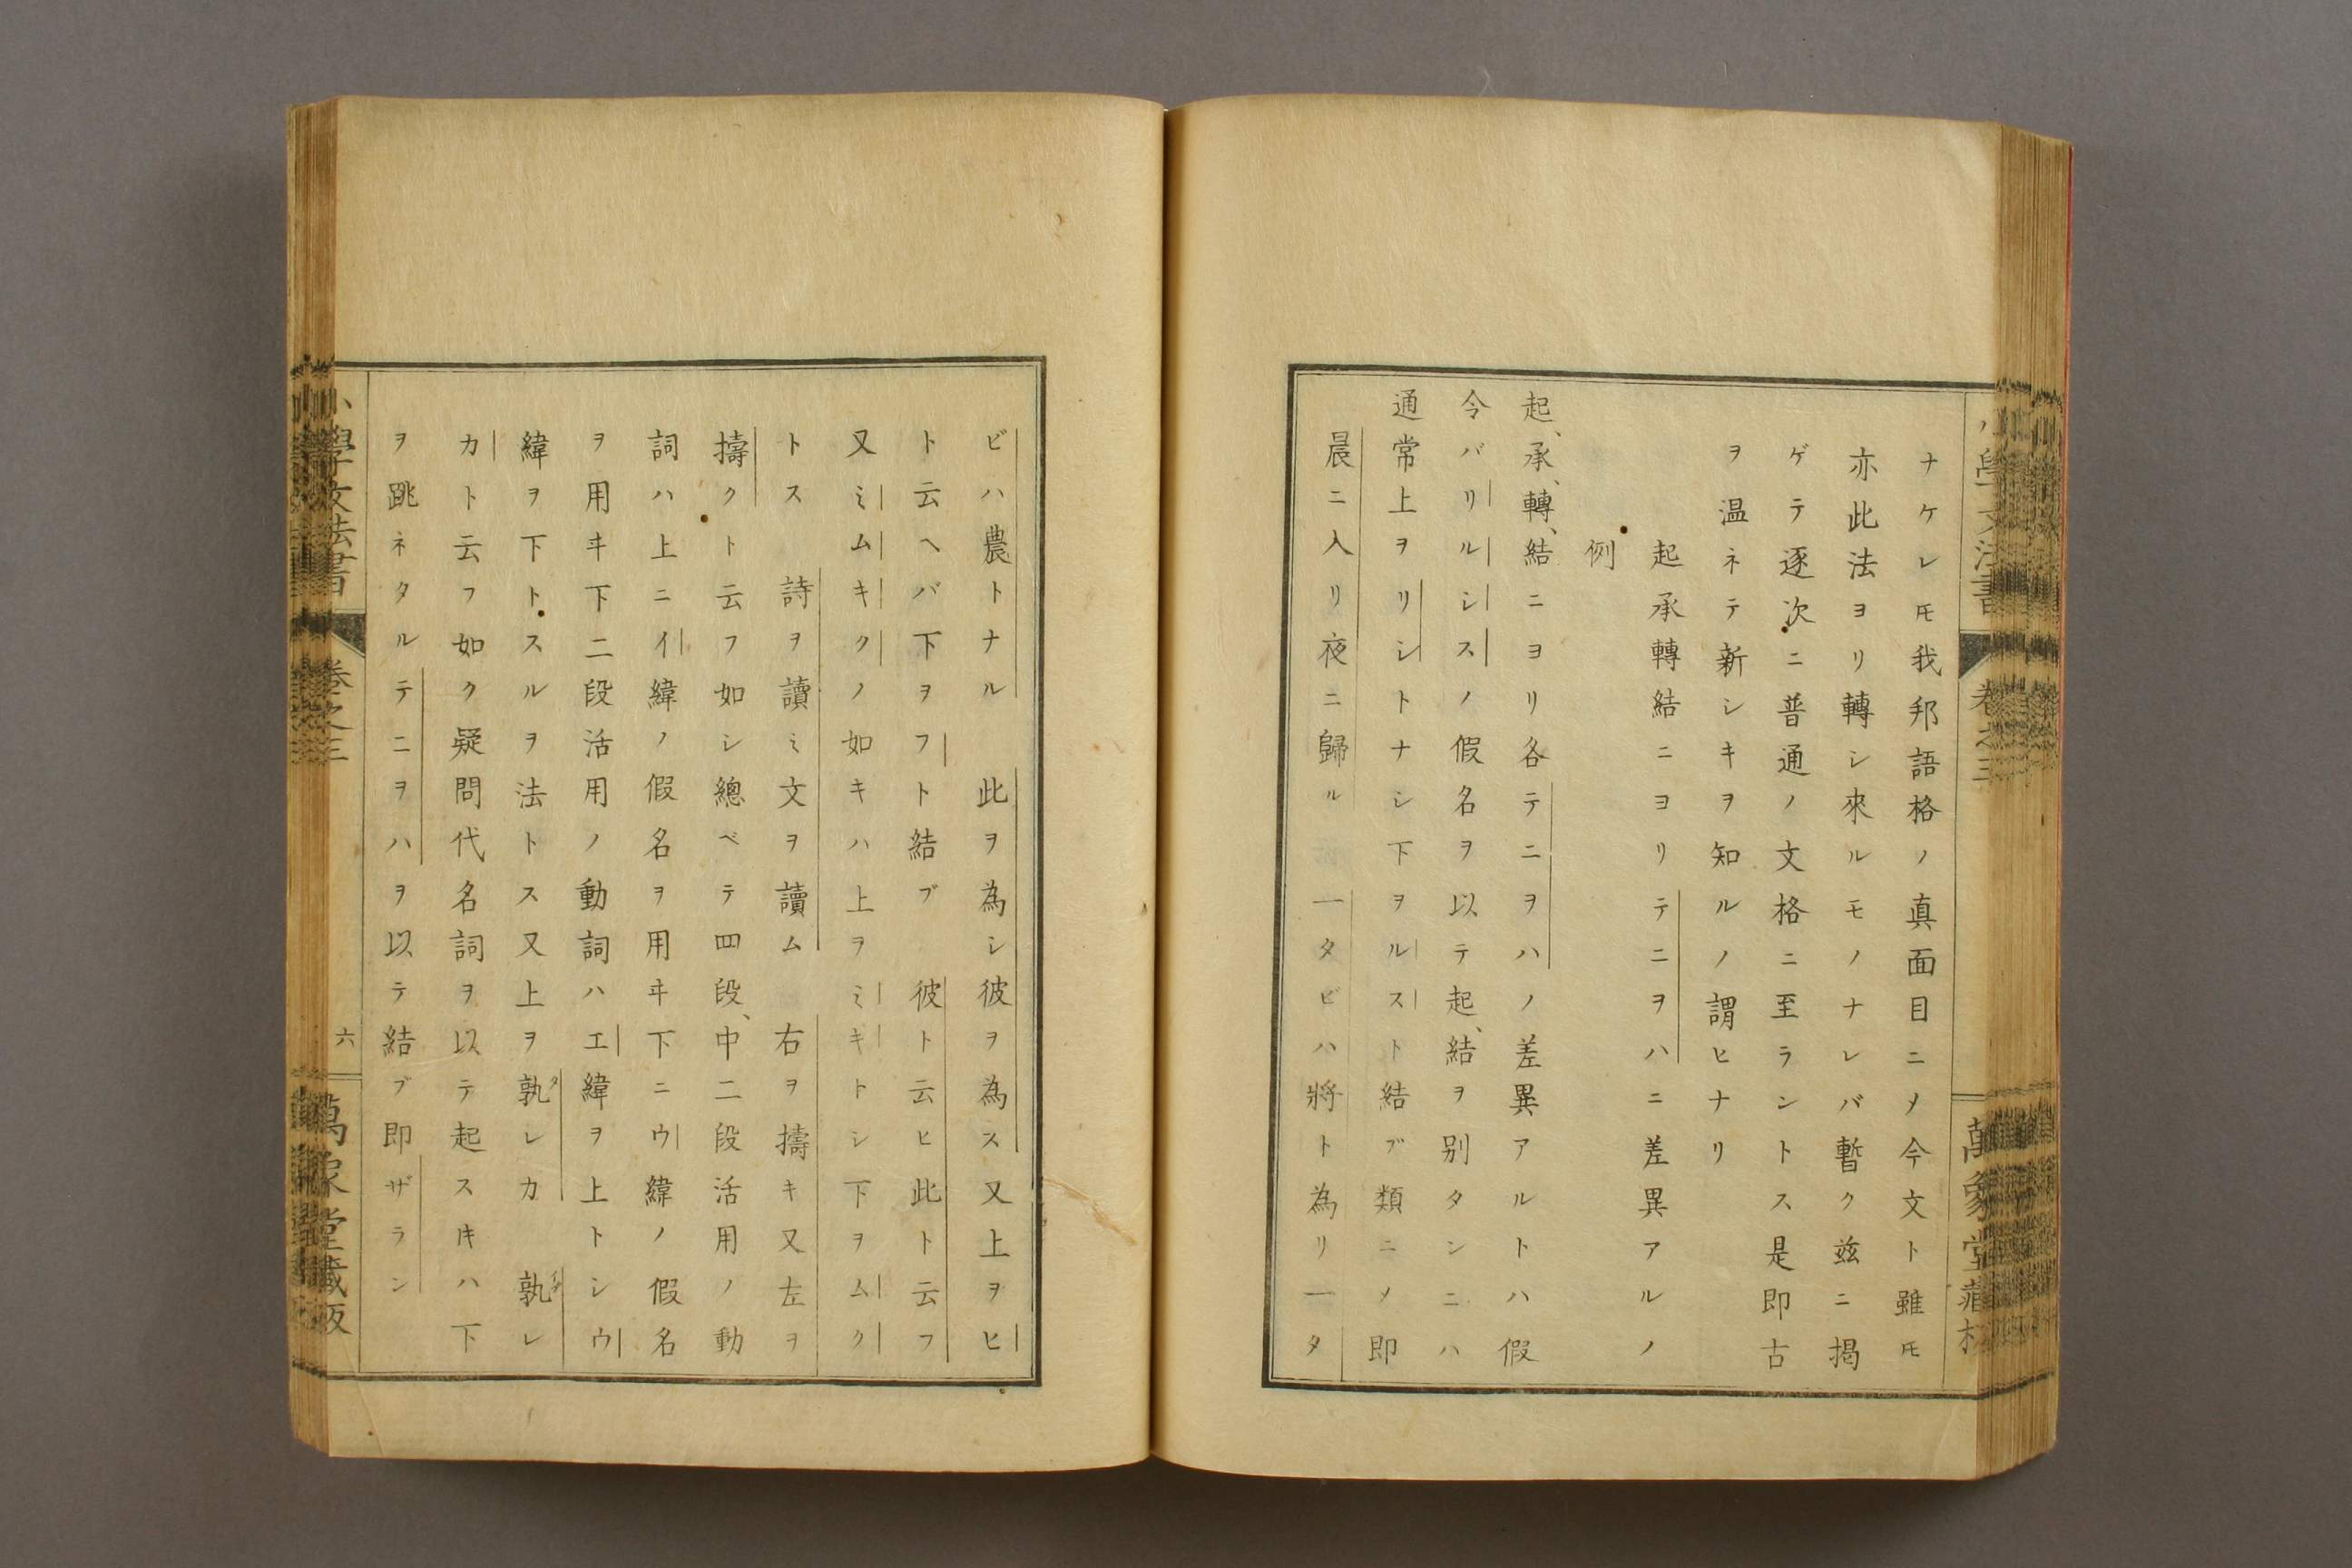 ナケレ𪜈我邦語格ノ真面目ニ〆今文ト雖𪜈
亦此法ヨリ轉シ來ルモノナレバ暫ク玆ニ掲
ゲテ逐次ニ普通ノ文格ニ至ラントス是即古
ヲ温ネテ新シキヲ知ルノ謂ヒナリ
起承轉結ニヨリテニヲハニ差異アルノ
例
起、承、轉、結ニヨリ各テニヲハノ差異アルトハ假
令バリルシスノ假名ヲ以テ起、結ヲ別タンニハ
通常上ヲリシトナシ下ヲルスト結ブ類ニ〆即
晨ニ入リ夜ニ歸ル 一タビハ將ト為リ一タ
小學文法書 卷之三 萬象堂藏板
ビハ農トナル 此ヲ為シ彼ヲ為ス又上ヲヒ
ト云ヘバ下ヲフト結ブ 彼ト云ヒ此ト云フ
又ミムキクノ如キハ上ヲミキトシ下ヲムク
トス 詩ヲ讀ミ文ヲ讀ム 右ヲ擣キ又左ヲ
擣クト云フ如シ總ベテ四段、中二段活用ノ動
詞ハ上ニイ緯ノ假名ヲ用ヰ下ニウ緯ノ假名
ヲ用ヰ下二段活用ノ動詞ハエ緯ヲ上トシウ
緯ヲ下トスルヲ法トス又上ヲ孰レカ 孰レ
カト云フ如ク疑問代名詞ヲ以テ起スキハ下
ヲ跳ネタルテニヲハヲ以テ結ブ即ザラン
小學文法書 卷之三 六 萬象堂藏板